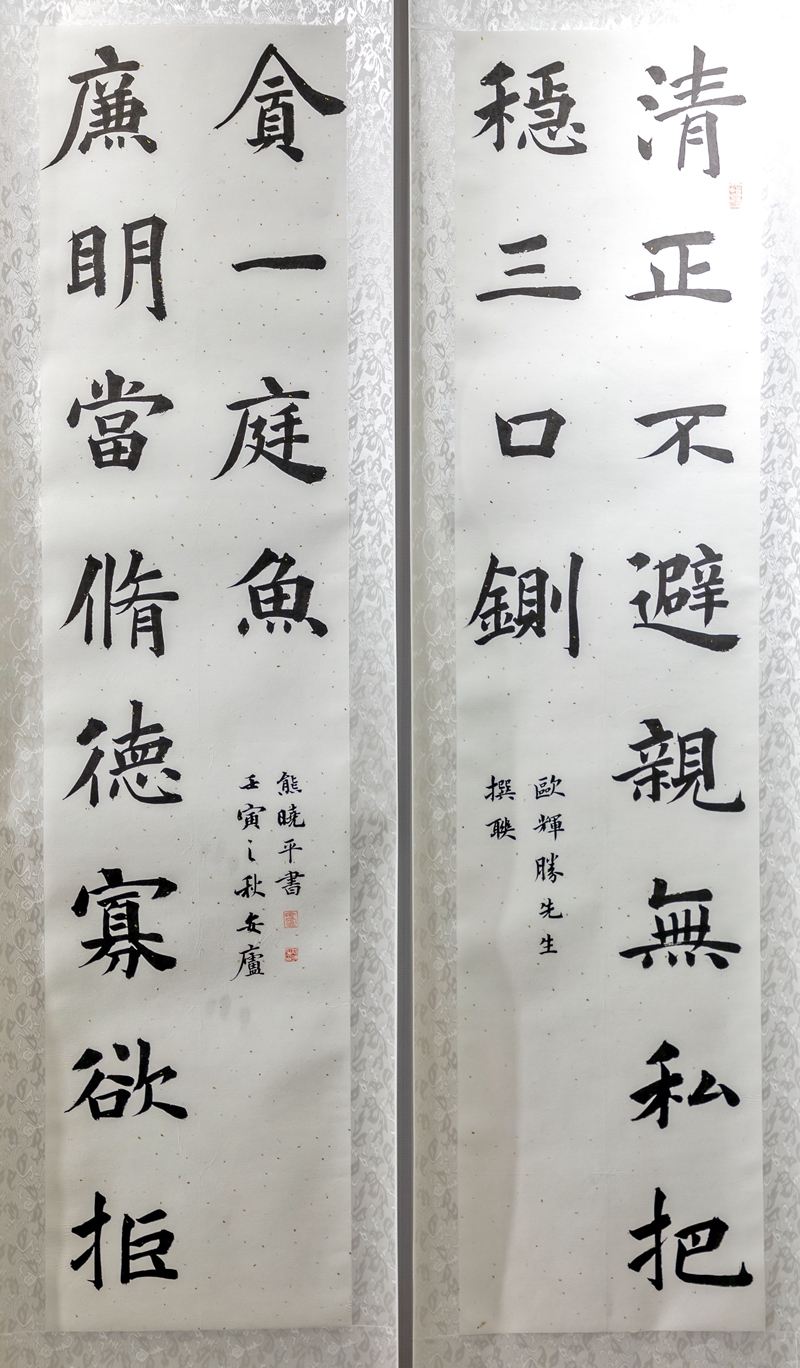 清正不避親無私把
穩三口鍘
歐輝勝先生
撰聯
廉明當脩德寡欲拒
貪一庭魚
壬寅之秋安廬
熊曉平書